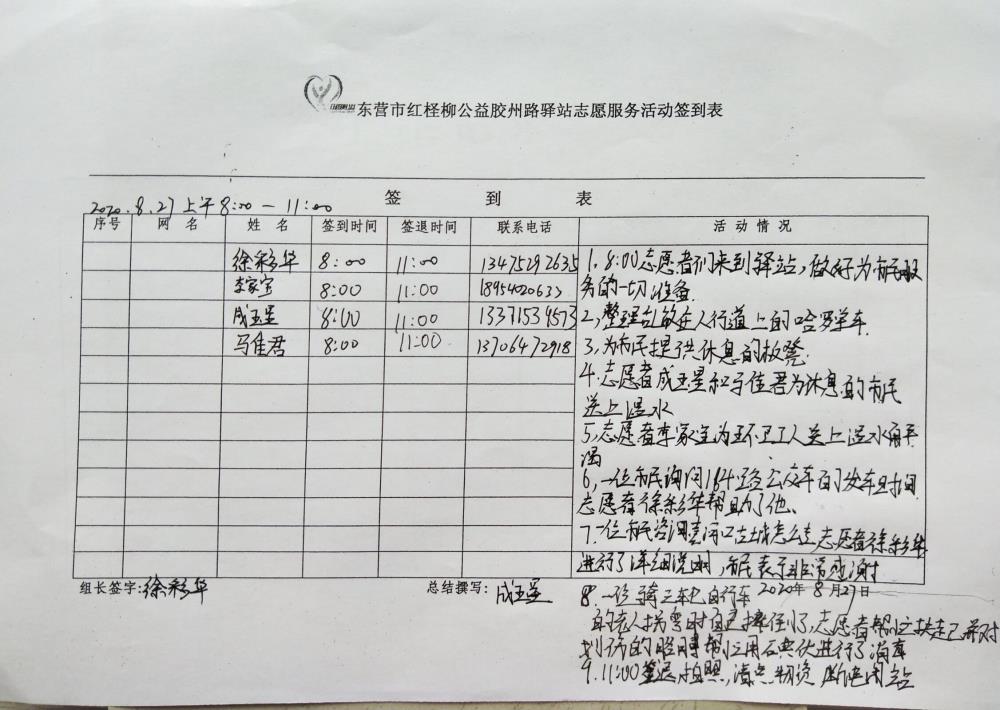 东营市红柽柳公益胶州路驿站志愿服务活动签到表
签 到 表
2020.8.27上午8:00—11:00
序号 网 名 姓 名 签到时间 签退时间 联系电话 活 动 情 况
徐彩华 8:00 11:00 13475292635
李家宝 8:00 11:00 18954020633
成玉星 8:00 11:00 13371534573
马佳君 8:00 11:00 13706472918
1、8:00志愿者们来到驿站,做好为市民服
务的一切准备.
2,整理乱放在人行道上的哈罗单车.
3,为市民提供休息的板凳.
4.志愿者成玉星和马佳君为休息的市民
送上温水
5,志愿者李家宝为环卫工人送上温水解暑
渴
6,一位市民询问184路公交车的发车时间
志愿者徐彩华帮助了他、
7.一位市民咨询黄河口古城怎么走志愿者徐彩华
进行了详细说明,市民表示非常感谢
组长签字:徐彩华 总结撰写:成玉星 2020年8月27日
8.一位骑三轮电自行车
的老人拐弯时自己摔倒了,志愿者帮忙扶起并对
划伤的胳膊帮忙用碘伏进行了消毒
9.11:00签退拍照,清点物资 断电闭站